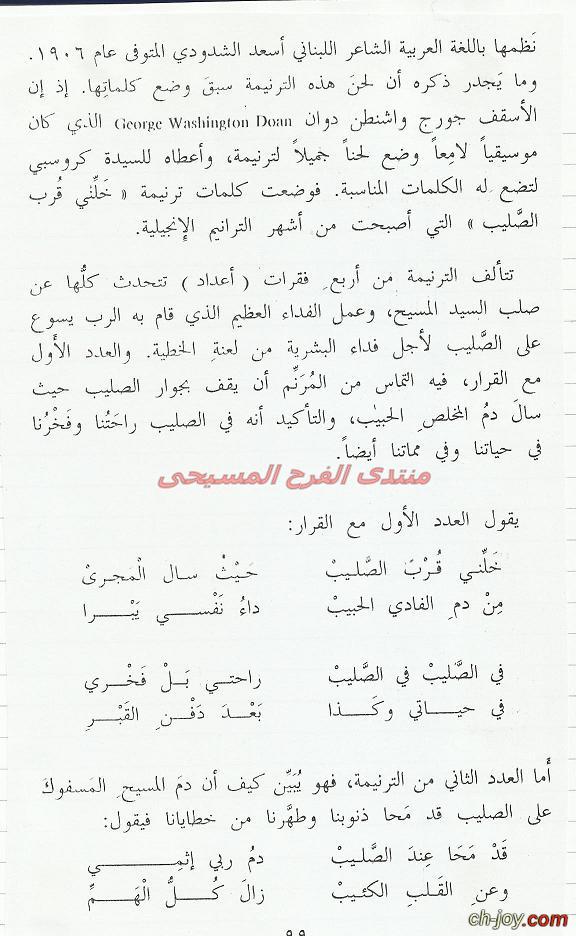 نَظمها باللغة العربية الشاعر اللبناني أسعد الشدودي المتوفى عام ١٩٠٦.
وما يَجدر ذكره أن لحنَ هذه الترنيمة سبقَ وضع كلماتِها. إذ إن
الأسقف جورج واشنطن دوان George Washington Doan الذي كان
موسيقياً لامِعاً وضع لحناً جميلاً لترنيمة، وأعطاه للسيدة كروسبي
لتضع له الكلمات المناسبة. فوضعت كلمات ترنيمة « خَلِّني قُرب
الصَّليب » التي أصبحت من أشهر الترانيم الإنجيلية.
تتألف الترنيمة من أربعِ فقرات ( أعداد ) تتحدث كلُّها عن
صلب السيد المسيح، وعمل الفداء العظيم الذي قام به الرب يسوع
على الصَّليب لأجل فداء البشرية من لعنةِ الخطية. والعدد الأَول
مع القرار، فيه التماس من المُرَنِّم أن يقف بجوار الصليب حيث
سالَ دمُ المخلصِ الحبيب، والتأكيد أنه في الصليب راحَتُنا وفَخْرُنا
في حياتنا وفي مماتنا أيضاً.
منتدى الفرح المسيحى
يقول العدد الأول مع القرار:
خَلِّني قُرْبَ الصَّليبْ حَيْثْ سال الْمَجرىْ
مِنْ دمِ الفادي الحَبيبْ داءُ نَفْسي يَبْرا
في الصَّليبْ في الصَّليبْ راحتي بَلْ فَخْري
في حياتي وكَذا بَعْدَ دَفْنِ القَبْرِ
أَما العدد الثاني من الترنيمة، فهو يُبَيِّن كيف أن دمَ المسيحِ المَسفوكَ
على الصليب قد مَحا ذنوبنا وطهَّرنا من خطايانا فيقول:
قَدْ مَحَا عِندَ الصَّليبْ دمُ ربي إثمِي
وعنِ القَلبِ الكئيبْ زالَ كُلُّ الْهَمِّ
٩٩
ch-joy.com